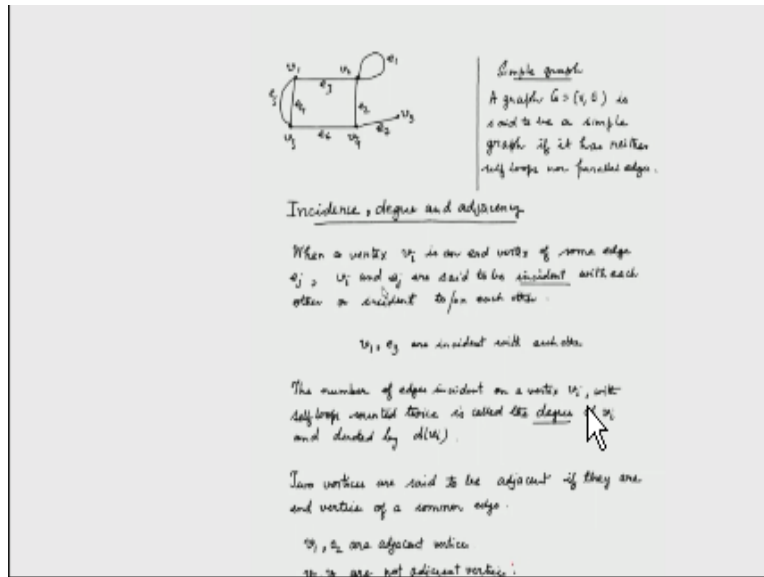 v₁ v₂ e₁
e₃
e₅ e₄ e₂ v₃
v₅ e₆ v₄ e₇
Simple graph
A graph G = (V, E) is
said to be a simple
graph if it has neither
self loops nor parallel edges.
Incidence, degree and adjacency
When a vertex vᵢ is an end vertex of some edge
eⱼ, vᵢ and eⱼ are said to be incident with each
other or incident to/on each other.
v₁, e₃ are incident with each other
The number of edges incident on a vertex vᵢ, with
self loop counted twice is called the degree of vᵢ
and denoted by d(vᵢ).
Two vertices are said to be adjacent if they are
end vertices of a common edge.
v₁, v₂ are adjacent vertices
are not adjacent vertices